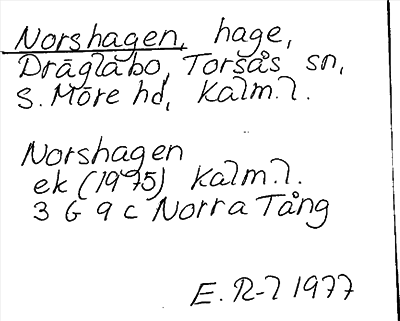 Norshagen, hage,
Dräglabo, Torsås sn,
S. Möre hd, Kalm. l.
Norshagen
ek (1975) Kalm. l.
3 G 9 c Norra Tång
E. R-l 1977